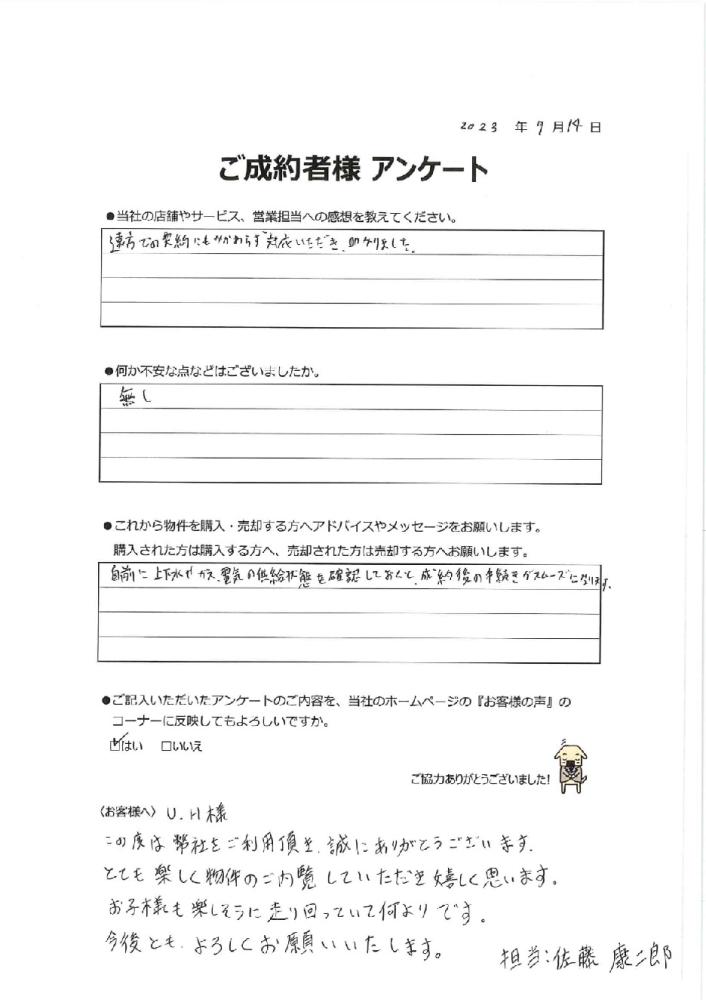 2023 年 9 月 14 日
ご成約者様 アンケート
●当社の店舗やサービス、営業担当への感想を教えてください。
遠方での契約にもかかわらず対応いただき、助かりました。
●何か不安な点などはございましたか。
無し
●これから物件を購入・売却する方へアドバイスやメッセージをお願いします。
購入された方は購入する方へ、売却された方は売却する方へお願いします。
事前に上下水やガス、電気の供給状態を確認しておくと、成約後の手続きがスムーズになります。
●ご記入いただいたアンケートのご内容を、当社のホームページの『お客様の声』の
コーナーに反映してもよろしいですか。
☑はい □いいえ
ご協力ありがとうございました!
〈お客様へ〉 U.H様
この度は弊社をご利用頂き、誠にありがとうございます。
とても楽しく物件のご内覧していただき嬉しく思います。
お子様も楽しそうに走り回っていて何よりです。
今後とも、よろしくお願いいたします。
担当:佐藤 康二郎